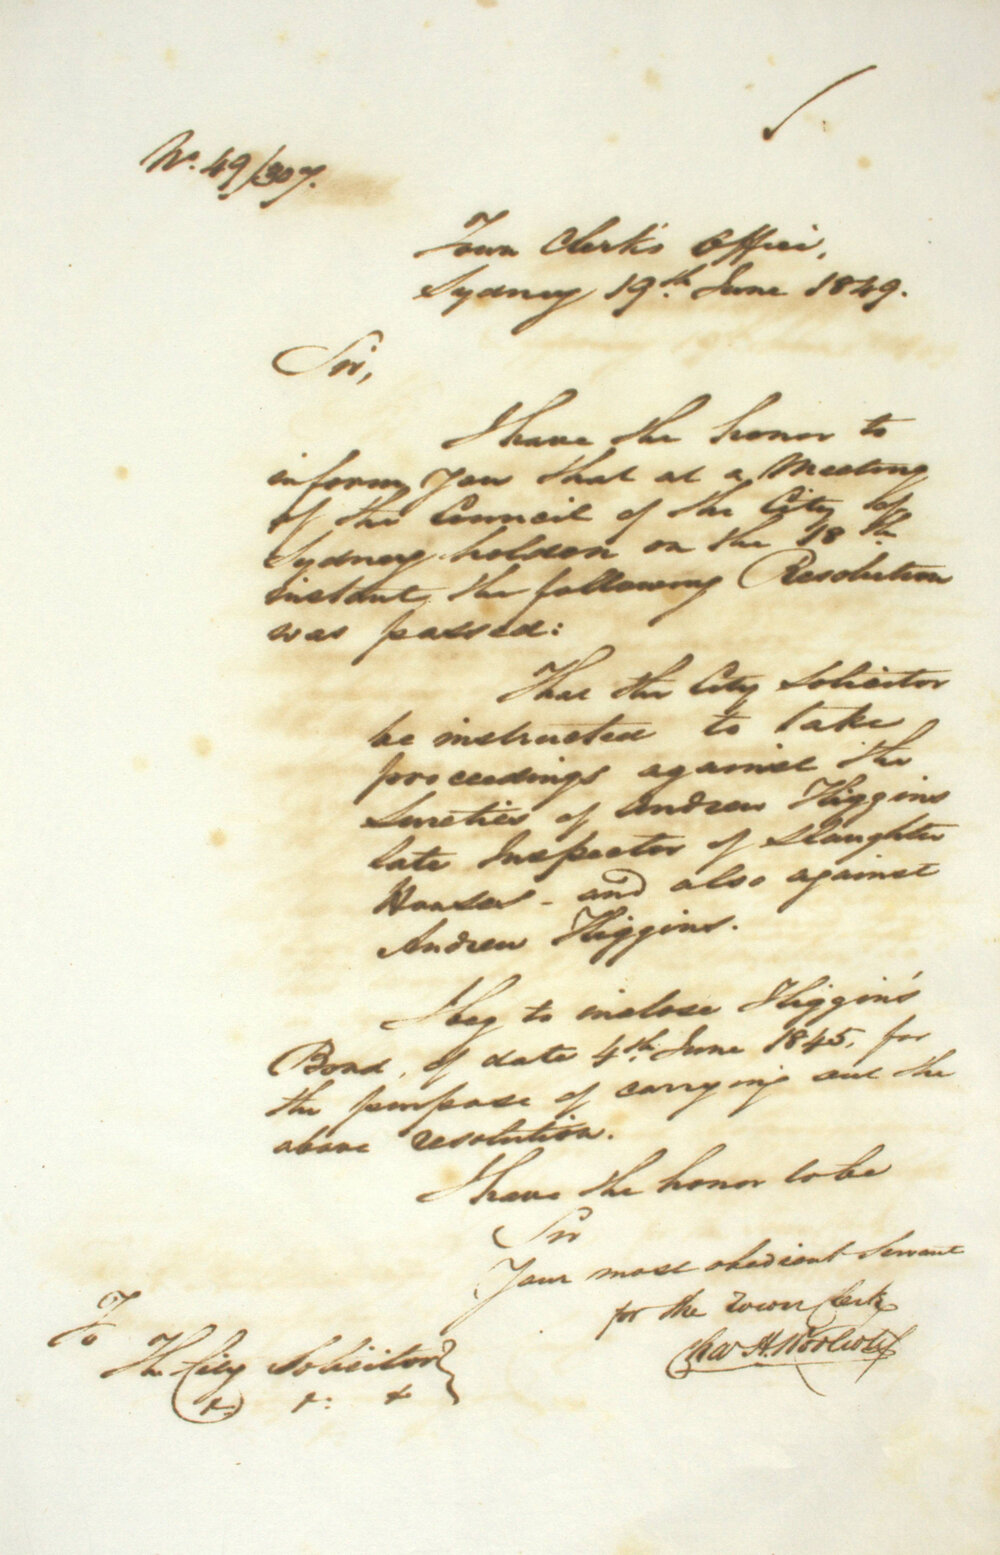 No. 49/307.
Town Clerk's Office,
Sydney 19th June 1849.
Sir,
I have the honor to
inform you that at a Meeting
of the Council of the City of
Sydney holden on the 18th
instant, the following Resolution
was passed:
That the City Solicitor
be instructed to take
proceedings against the
Sureties of Andrew Higgins
late Inspector of Slaughter
Houses - and also against
Andrew Higgins.
I beg to inclose Higgin's
Bond, of date 4th June 1845, for
the purpose of carrying out the
above resolution.
I have the honor to be
Sir
Your most obedient Servant
for the Town Clerk
Chas H. Woolcott
To
The City Solicitor